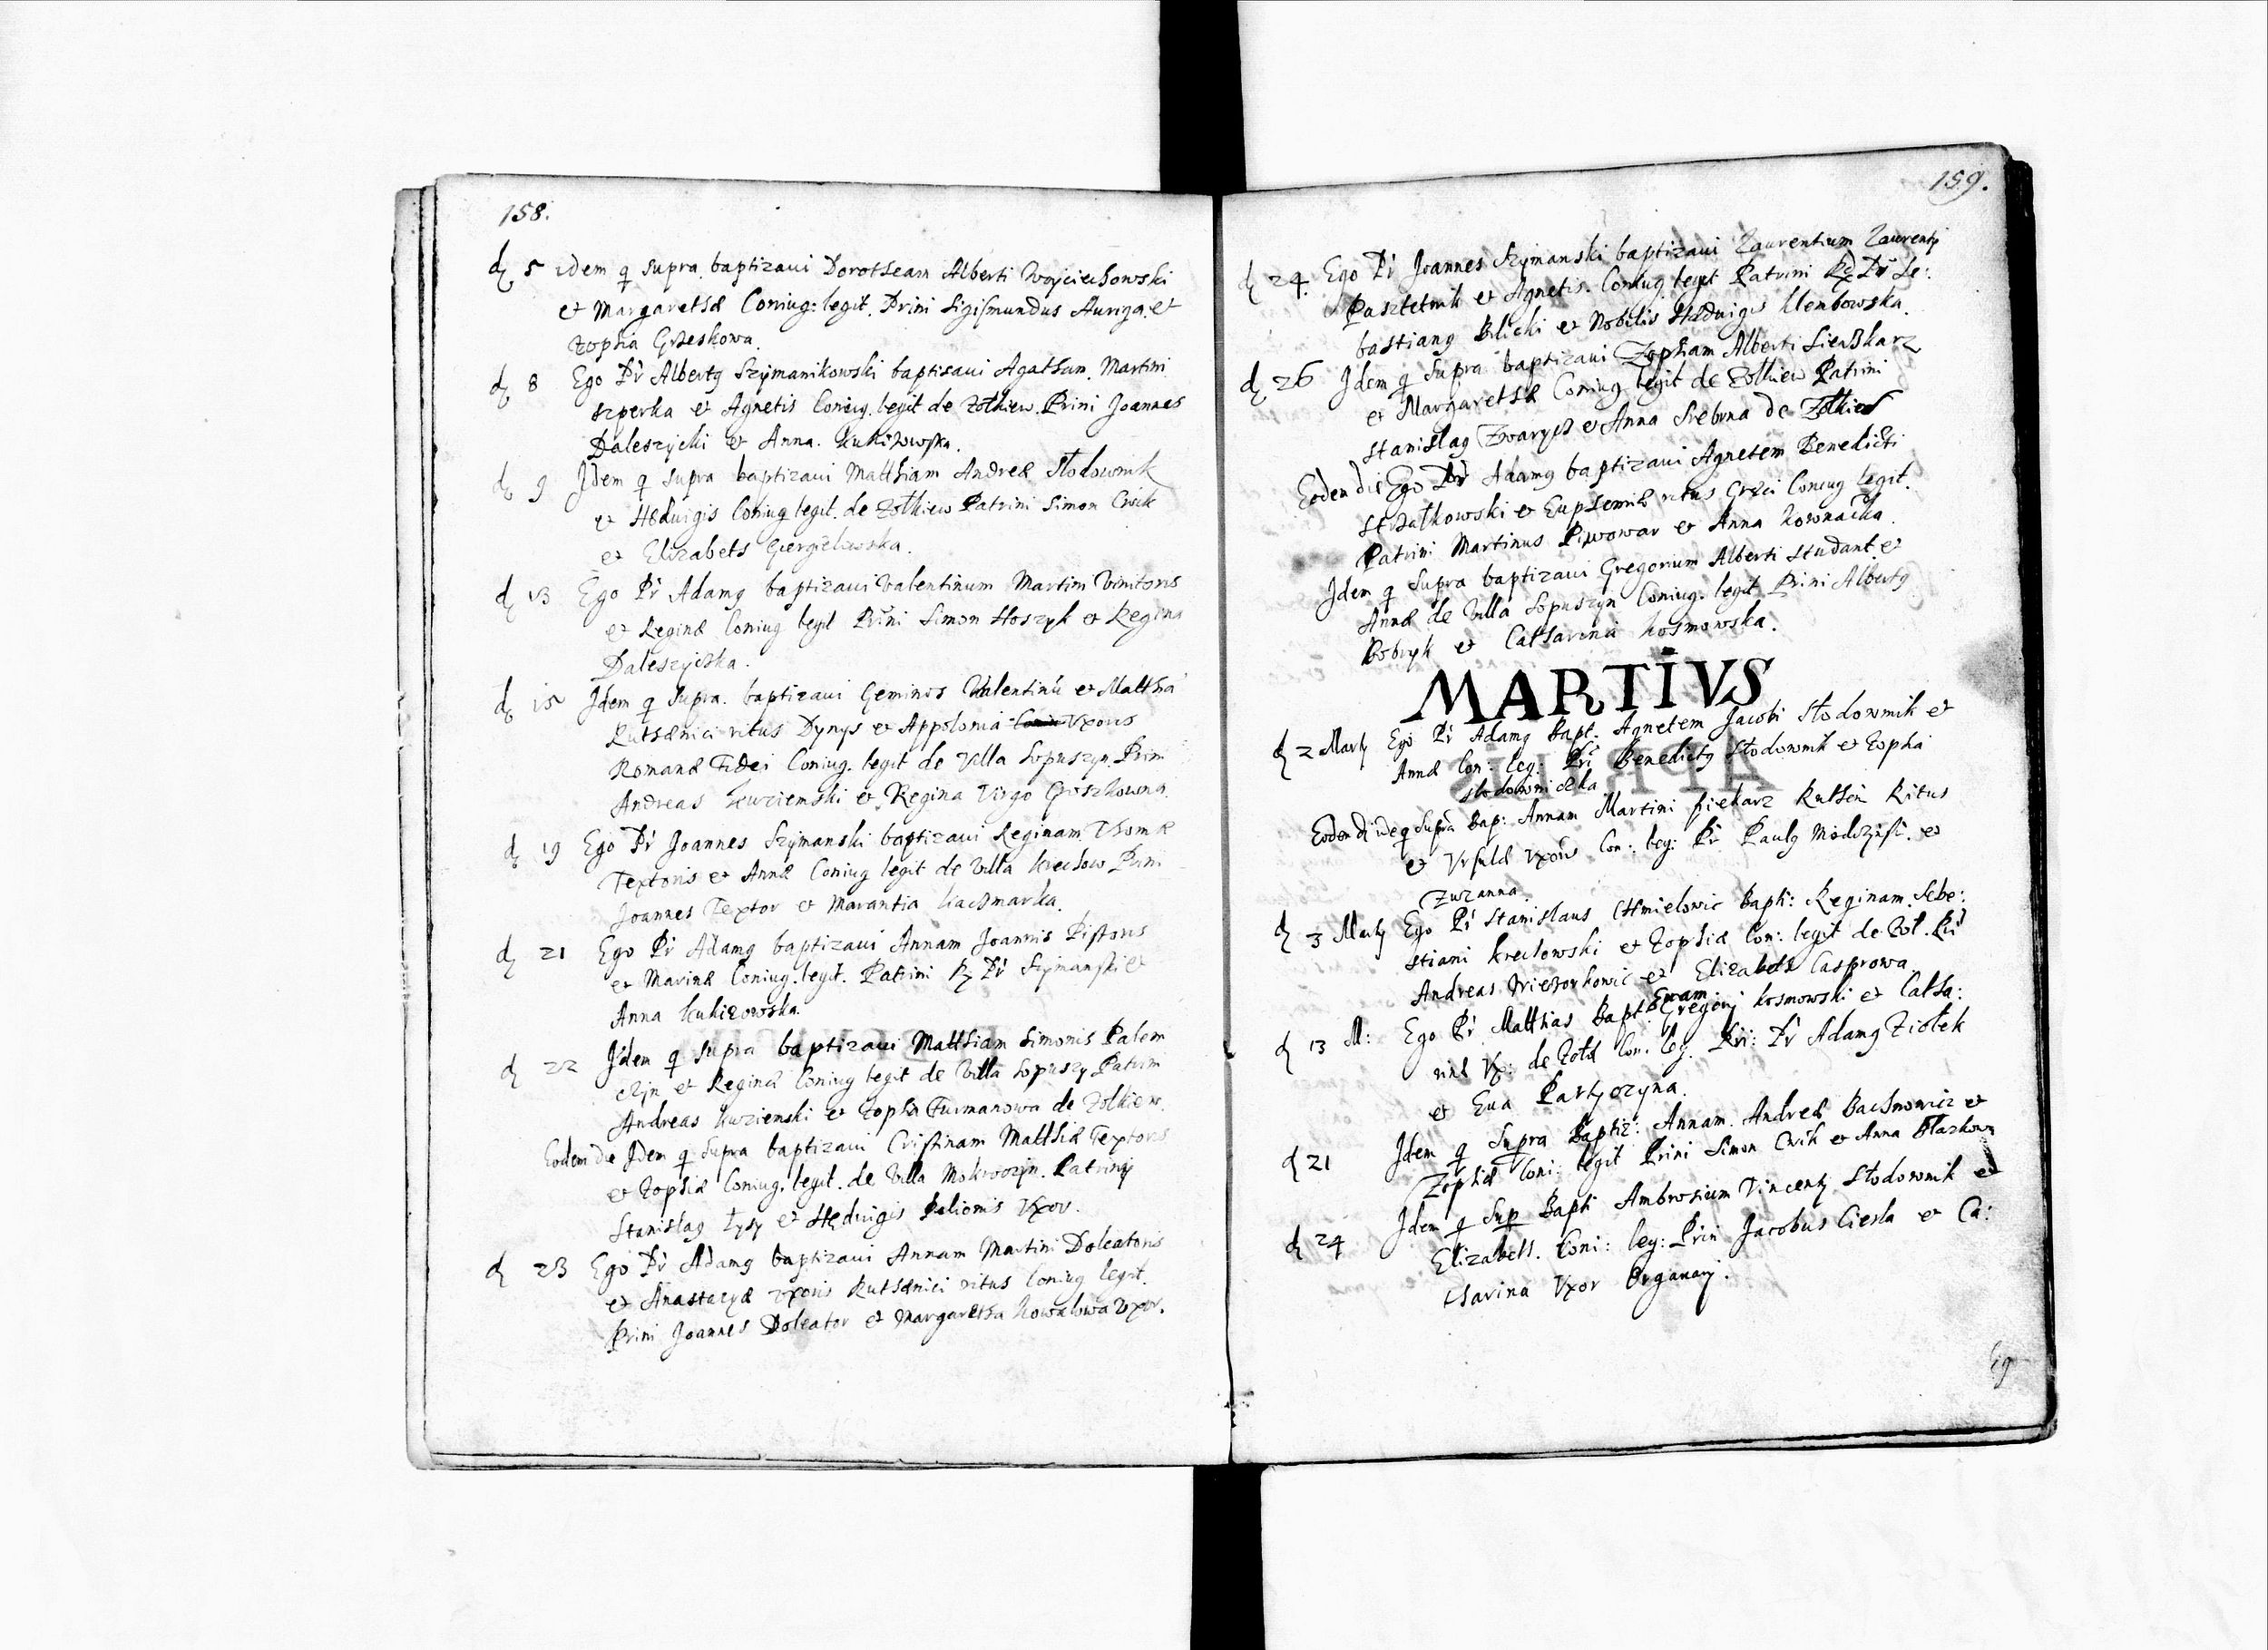 158.
d 5 idem q supra baptizaui Dorotheam Alberti Woyciechowski
et Margarethæ Coniug: legit. Prini Sigismundus Auriga et
Zophia Grzeskowa.
d 8 Ego Pr Albertg Szymanikowski baptisaui Agatham Martini
szperka et Agnetis Coniug. legit de Zolkiew. Prini Joannes
Daleszycki et Anna Kukizowska.
d 9 Jdem q supra baptizaui Matthiam Andreæ Słodownik
et Hedwigis Coniug legit. de Zolkiew Patrini Simon Cwik
et Elizabeth
d 13 Ego Pr Adamg baptizaui Valentinum Martini Vinitoris
et Reginæ Coniug legit Prini Simon Hoszyk et Regina
Daleszycka.
d 15 Jdem q supra. baptizaui Geminos Valentinū et Matthiā
Ruthænici ritus Dynys et Appolonia Vxoris
Romanæ Fidei Coniug. legit de Villa Sopuszyn. Prini
Andreas Kuziemski et Regina Virgo Groszkowna.
d 19 Ego Pr Joannes Szymanski baptizaui Reginam Thomæ
Textoris et Annæ Coniug legit de Villa Krechow Prini
Joannes Textor et Marantia Kaczmarka.
d 21 Ego Pr Adamg baptizaui Annam Joannis Pistoris
et Marinæ Coniug. legit. Patrini R Pr Szymanski et
Anna Kukizowska.
d 22 Jdem q supra baptizaui Matthiam Simonis Palem
czyn et Reginæ Coniug legit de Villa Sopuszy Patrini
Andreas Kuziemski et Zophia Furmanowa de Zolkiew.
Eodem die Jdem q supra baptizaui Cristinam Matthiæ Textoris
et Zophiæ Coniug. legit. de Villa Mokroozyn. Patrinij
Stanislag Łysy et Hedwigis Pelionis Vxor.
d 23 Ego Pr Adamg baptizaui Annam Martini Doleatoris
et Anastazyæ vxoris Ruthænici ritus Coniug legit.
Prini Joannes Doleator et Margaretha Kowalowa Vxor.
159.
d 24. Ego Pr Joannes Szymanski baptizaui Laurentium Laurentij
Pasztetnik et Agnetis. Coniug. legit Patrini Rd Pr Se:
bastiang Bilicki et Nobilis Hedwigis Klembowska.
d 26 Jdem q supra baptizaui Zophiam Alberti Sieczkarz
et Margarethæ Coniug legit de Zolkiew Patrini
Stanislag Zwarycz et Anna Srebrna de Zolkiew
Eodem die Ego Pr Adamg baptizaui Agnetem Benedicti
Strzałkowski et Euphemiæ ritus Græci Coniug legit.
Patrini Martinus Piwowar et Anna Kownacka.
Jdem q supra baptizaui Gregorium Alberti Studant et
Annæ de Villa Sopuszyn Coniug. legit Prini Albertg
Bobryk et Catharina Kosmowska.
MARTIVS
d 2 Martij Ego Pr Adamg Bapt. Agnetem Jacobi Słodownik et
Annæ Con: leg: Pri Benedictg Słodownik et Zophia
Słodowniczka
Eodem d ideq supra Bap: Annam Martini piekarz Ruthen Ritus
et Vrsulæ Vxoris Con: leg: Pr Paulg et
Zuzanna.
d 3 Martij Ego Pr Stanislaus Chmielowic Bapti: Reginam Sebe:
stiani Krechowski et Zophiæ Con: legit de Zol. Pri
Andreas Wieworkowic et Elizabeth Casprowa
d 13 M: Ego Pr Matthias Bapt Euam Gregorij Kosmowski et Catha:
rinæ Vx: de Zołd Con: leg. Pri: Pr Adamg Ziołek
et Eua Partyczyna.
d 21 Jdem q Supra Baptiz: Annam. Andreæ Bachnowicz et
Zophiæ Coni: legit Prini Simon Cwik et Anna Blazkowa
d 24 Jdem q Sup Bapti Ambrosium Vincentij Słodownik et
Elizabeth. Coni: leg: Prini Jacobus Ciesla et Ca:
tharina Vxor Organarij.